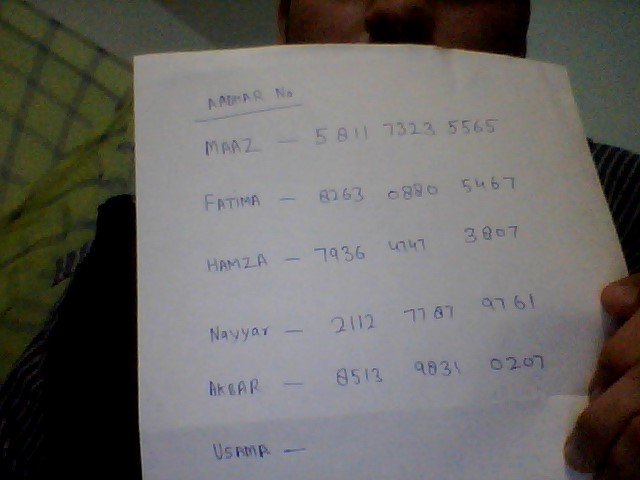 AADHAR No
MAAZ – 5811 7323 5565
FATIMA – 8263 0880 5467
HAMZA – 7936 4747 3807
Nayyar – 2112 7787 9761
AKBAR – 8513 9831 0207
USAMA –